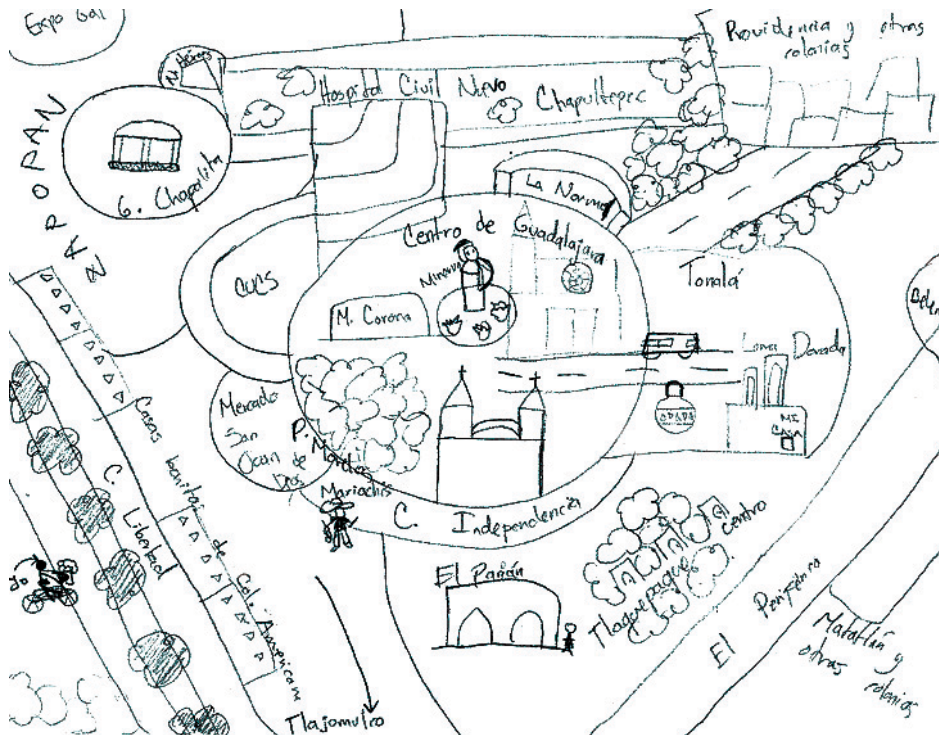 Expo Gdl
Providencia y otras
colonias
N. Héroes
Hospital Civil Nuevo
Chapultepec
ZAPOPAN
G. Chapalita
La Norma
Centro de Guadalajara
Minerva
CUCS
M. Corona
Tonalá
Loma Dorada
MI
CASA
Mercado
San
Juan de
Dios
P. Morelos
Mariachis
C. Independencia
C. Libertad
Casas bonitas de Col. Americana
El Parián
Tlaquepaque centro
El Periférico
Matatlán y
otras
colonias
Tlajomulco